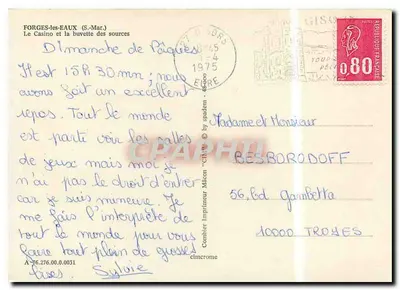 FORGES-les-EAUX (S.-Mar.)
Le Casino et la buvette des sources
Dimanche de Pâques
Il est 15H 30 mn ; nous
avons fait un excellent
repas. Tout le monde
est parti voir les salles
de jeux mais moi je
n'ai pas le droit d'entrer
car je suis mineure. Je
me fais l'interprète de
tout le monde pour vous
faire tout plein de grosses
bises. Sylvie
A 76.276.00.0.0031
Combier Imprimeur Mâcon "Cim"
elmcrome
GISORS
1975
EURE
0,80
Madame et Monsieur
BEZBORODOFF
56, bd Gambetta
10000 TROYES
CPARAMA